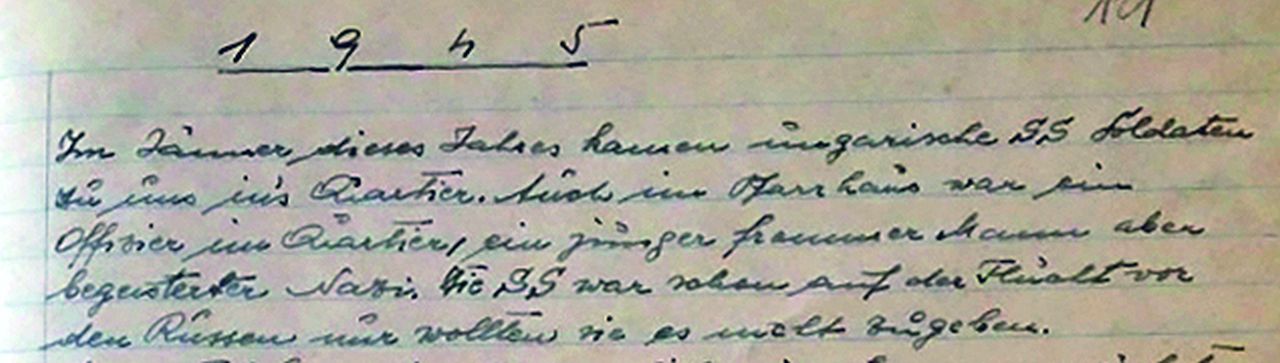 1 9 4 5
Im Jänner dieses Jahres kamen ungarische SS Soldaten
zu uns in's Quartier. Auch im Pfarrhaus war ein
Offizier im Quartier, ein junger frommer Mann aber
begeisterter Nazi. Die SS war schon auf der Flucht vor
den Russen nur wollten sie es nicht zugeben.